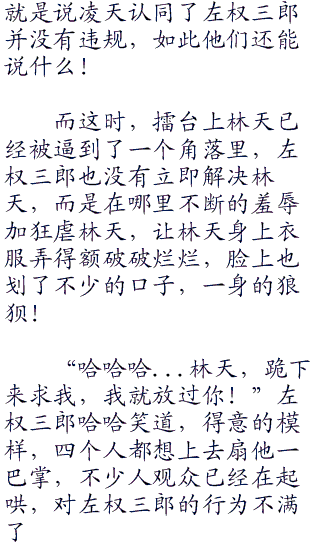 就是说凌天认同了左权三郎
并没有违规，如此他们还能
说什么！
而这时，擂台上林天已
经被逼到了一个角落里，左
权三郎也没有立即解决林
天，而是在哪里不断的羞辱
加狂虐林天，让林天身上衣
服弄得额破破烂烂，脸上也
划了不少的口子，一身的狼
狈！
“哈哈哈...林天，跪下
来求我，我就放过你！”左
权三郎哈哈笑道，得意的模
样，四个人都想上去扇他一
巴掌，不少人观众已经在起
哄，对左权三郎的行为不满
了